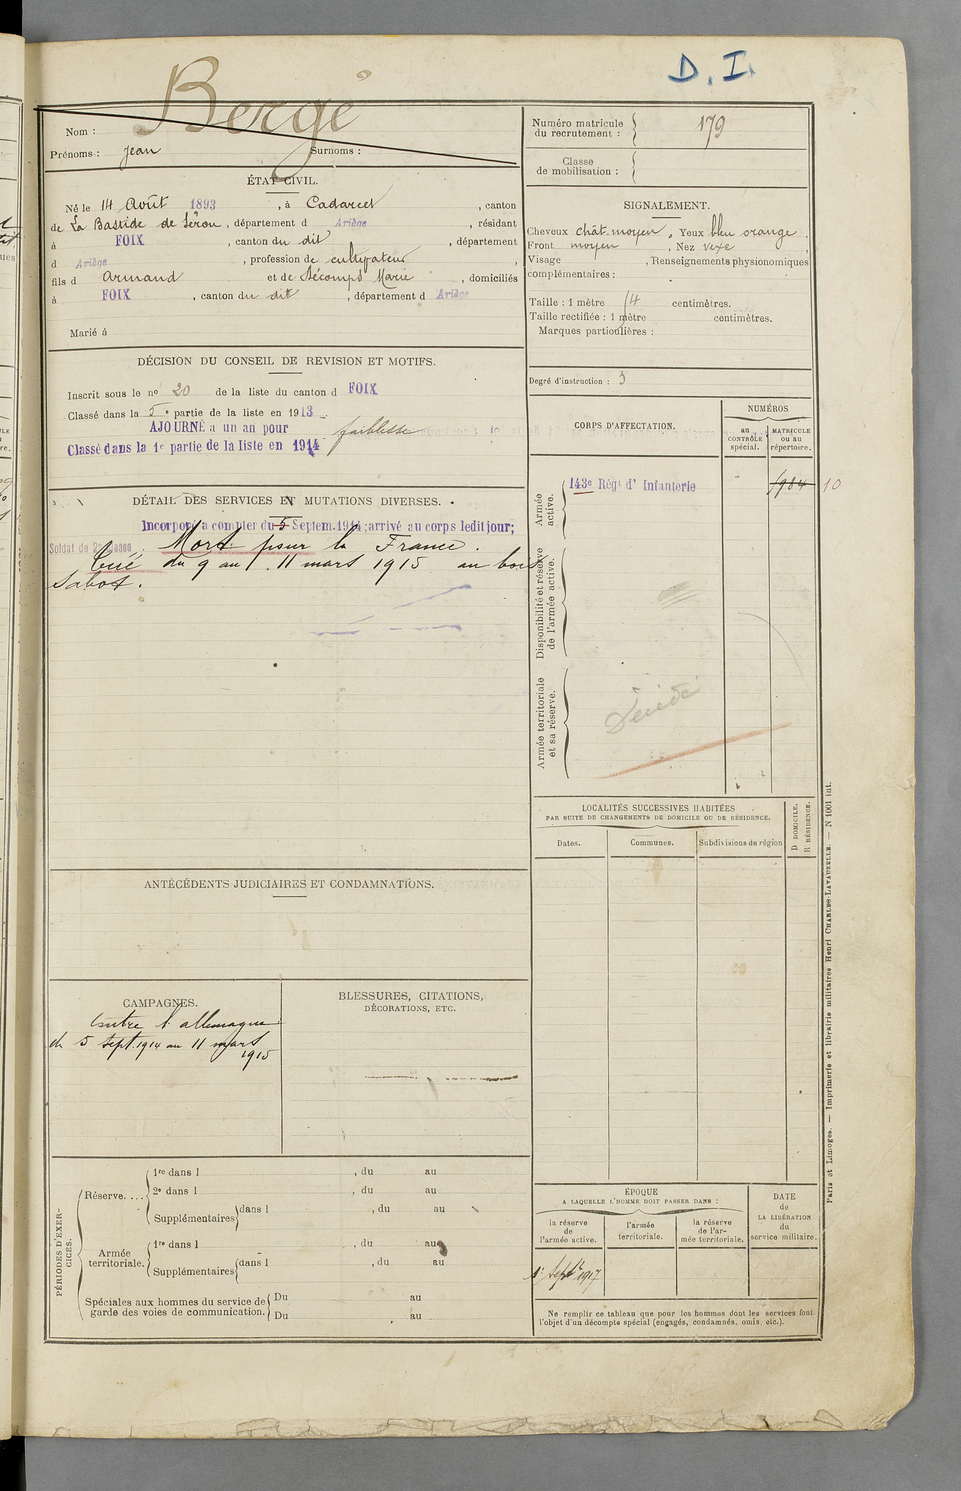 D. I.
Bergé
Nom :
Prénoms : Jean Surnoms :
Numéro matricule du recrutement : 179
Classe de mobilisation :
ÉTAT CIVIL.
Né le 14 Août 1893, à Cadarcet, canton
de La Bastide de Sérou, département d Ariège, résidant
à FOIX, canton du dit, département
d Ariège, profession de cultivateur,
fils d Armand et de Sécomps Marie, domiciliés
à FOIX, canton du dit, département d Ariège
Marié à
SIGNALEMENT.
Cheveux chât. moyen, Yeux bleu orange,
Front moyen, Nez vexe,
Visage , Renseignements physionomiques
complémentaires :
Taille : 1 mètre centimètres.
Taille rectifiée : 1 mètre centimètres.
Marques particulières :
Degré d'instruction : 3
DÉCISION DU CONSEIL DE REVISION ET MOTIFS.
Inscrit sous le nº 20 de la liste du canton d FOIX
Classé dans la 5e partie de la liste en 1913.
AJOURNÉ a un an pour faiblesse
Classé dans la 1e partie de la liste en 1914
DÉTAIL DES SERVICES ET MUTATIONS DIVERSES.
Incorporé a compter du 5 Septem. 1914; arrivé au corps ledit jour;
Soldat de 2e classe. Mort pour la France.
Tué du 9 au 11 mars 1915 au bois
Sabot.
CORPS D'AFFECTATION.
NUMÉROS
au CONTRÔLE spécial.
MATRICULE ou au répertoire.
Armée active.
143e Régt d'Infanterie
10
Disponibilité et réserve de l'armée active.
Armée territoriale et sa réserve.
LOCALITÉS SUCCESSIVES HABITÉES
PAR SUITE DE CHANGEMENTS DE DOMICILE OU DE RÉSIDENCE.
Dates. Communes. Subdivisions de région
D DOMICILE.
R RÉSIDENCE.
ANTÉCÉDENTS JUDICIAIRES ET CONDAMNATIONS.
CAMPAGNES.
Contre l'allemagne
du 5 Sept. 1914 au 11 mars
1915
BLESSURES, CITATIONS,
DÉCORATIONS, ETC.
PÉRIODES D'EXERCICES.
Réserve....
1re dans l , du au
2e dans l , du au
Supplémentaires dans l , du au
Armée territoriale.
1re dans l , du au
Supplémentaires dans l , du au
Spéciales aux hommes du service de
garde des voies de communication.
Du au
Du au
ÉPOQUE
A LAQUELLE L'HOMME DOIT PASSER DANS :
la réserve de l'armée active.
l'armée territoriale.
la réserve de l'armée territoriale.
DATE de LA LIBÉRATION du service militaire.
1er Septbre 1917
Ne remplir ce tableau que pour les hommes dont les services font
l'objet d'un décompte spécial (engagés, condamnés, omis, etc.).
Paris et Limoges. — Imprimerie et librairie militaires Henri CHARLES-LAVAUZELLE. — N 1001 int.